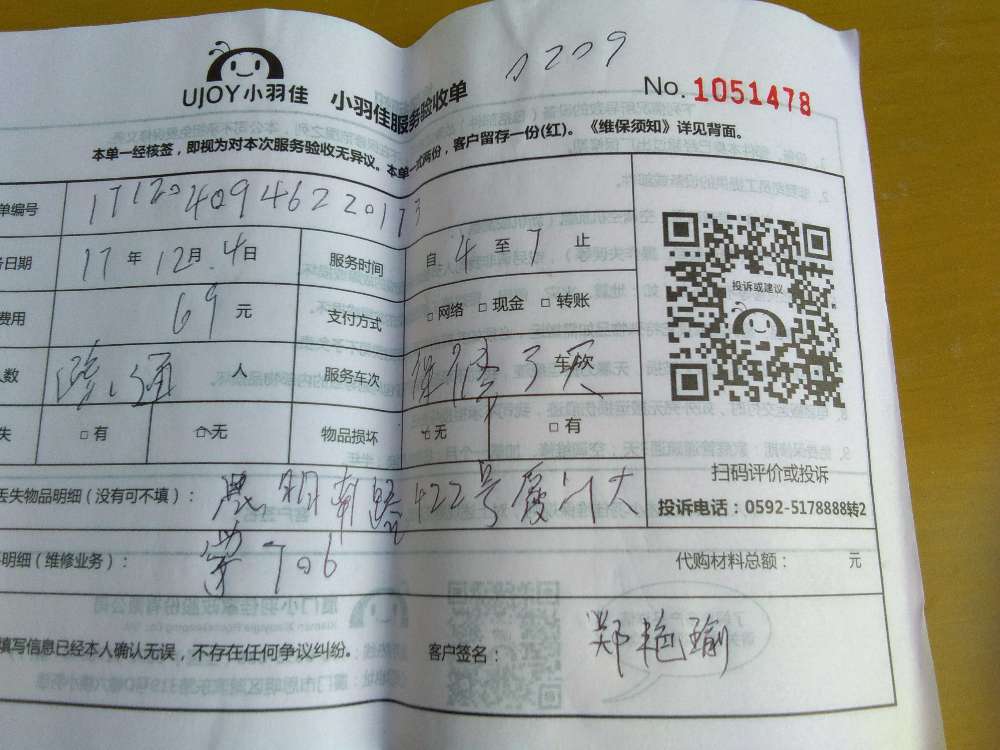 0209
UJOY小羽佳 小羽佳服务验收单 No. 1051478
本单一经核签，即视为对本次服务验收无异议。本单一式两份，客户留存一份(红)。《维保须知》详见背面。
单编号 171204094622017
务日期 17 年 12 月 4 日 服务时间 自 4 至 7 止
费用 69 元 支付方式 □网络 □现金 □转账
人数 疏通 人 服务车次 保修3天 车次
失 □有 □无 物品损坏 □无 □有
投诉或建议
扫码评价或投诉
投诉电话：0592-5178888转2
丢失物品明细（没有可不填）： 思明南路422号厦门大
学706
明细（维修业务）： 代购材料总额： 元
填写信息已经本人确认无误，不存在任何争议纠纷。 客户签名： 郑艳瑜